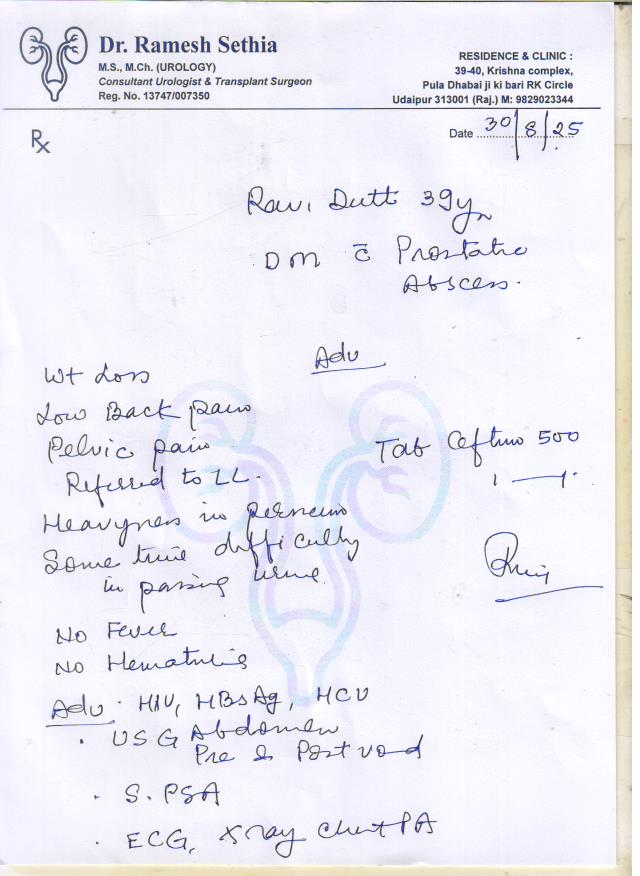 Dr. Ramesh Sethia
M.S., M.Ch. (UROLOGY)
Consultant Urologist & Transplant Surgeon
Reg. No. 13747/007350
RESIDENCE & CLINIC :
39-40, Krishna complex,
Pula Dhabai ji ki bari RK Circle
Udaipur 313001 (Raj.) M: 9829023344
Date 30/8/25
Rx
Ravi Dutt 39yr
DM c̄ Prostatic
Abscess.
Adv
Wt Loss
Low Back pain
Pelvic pain
Referred to LL.
Tab Ceftum 500
1 — 1
Heavyness in perineum
Some time difficulty
in passing urine
No Fever
No Hematuria
Adv · HIV, HBsAg, HCV
· USG Abdomen
Pre & Post void
· S. PSA
· ECG, Xray Chest PA